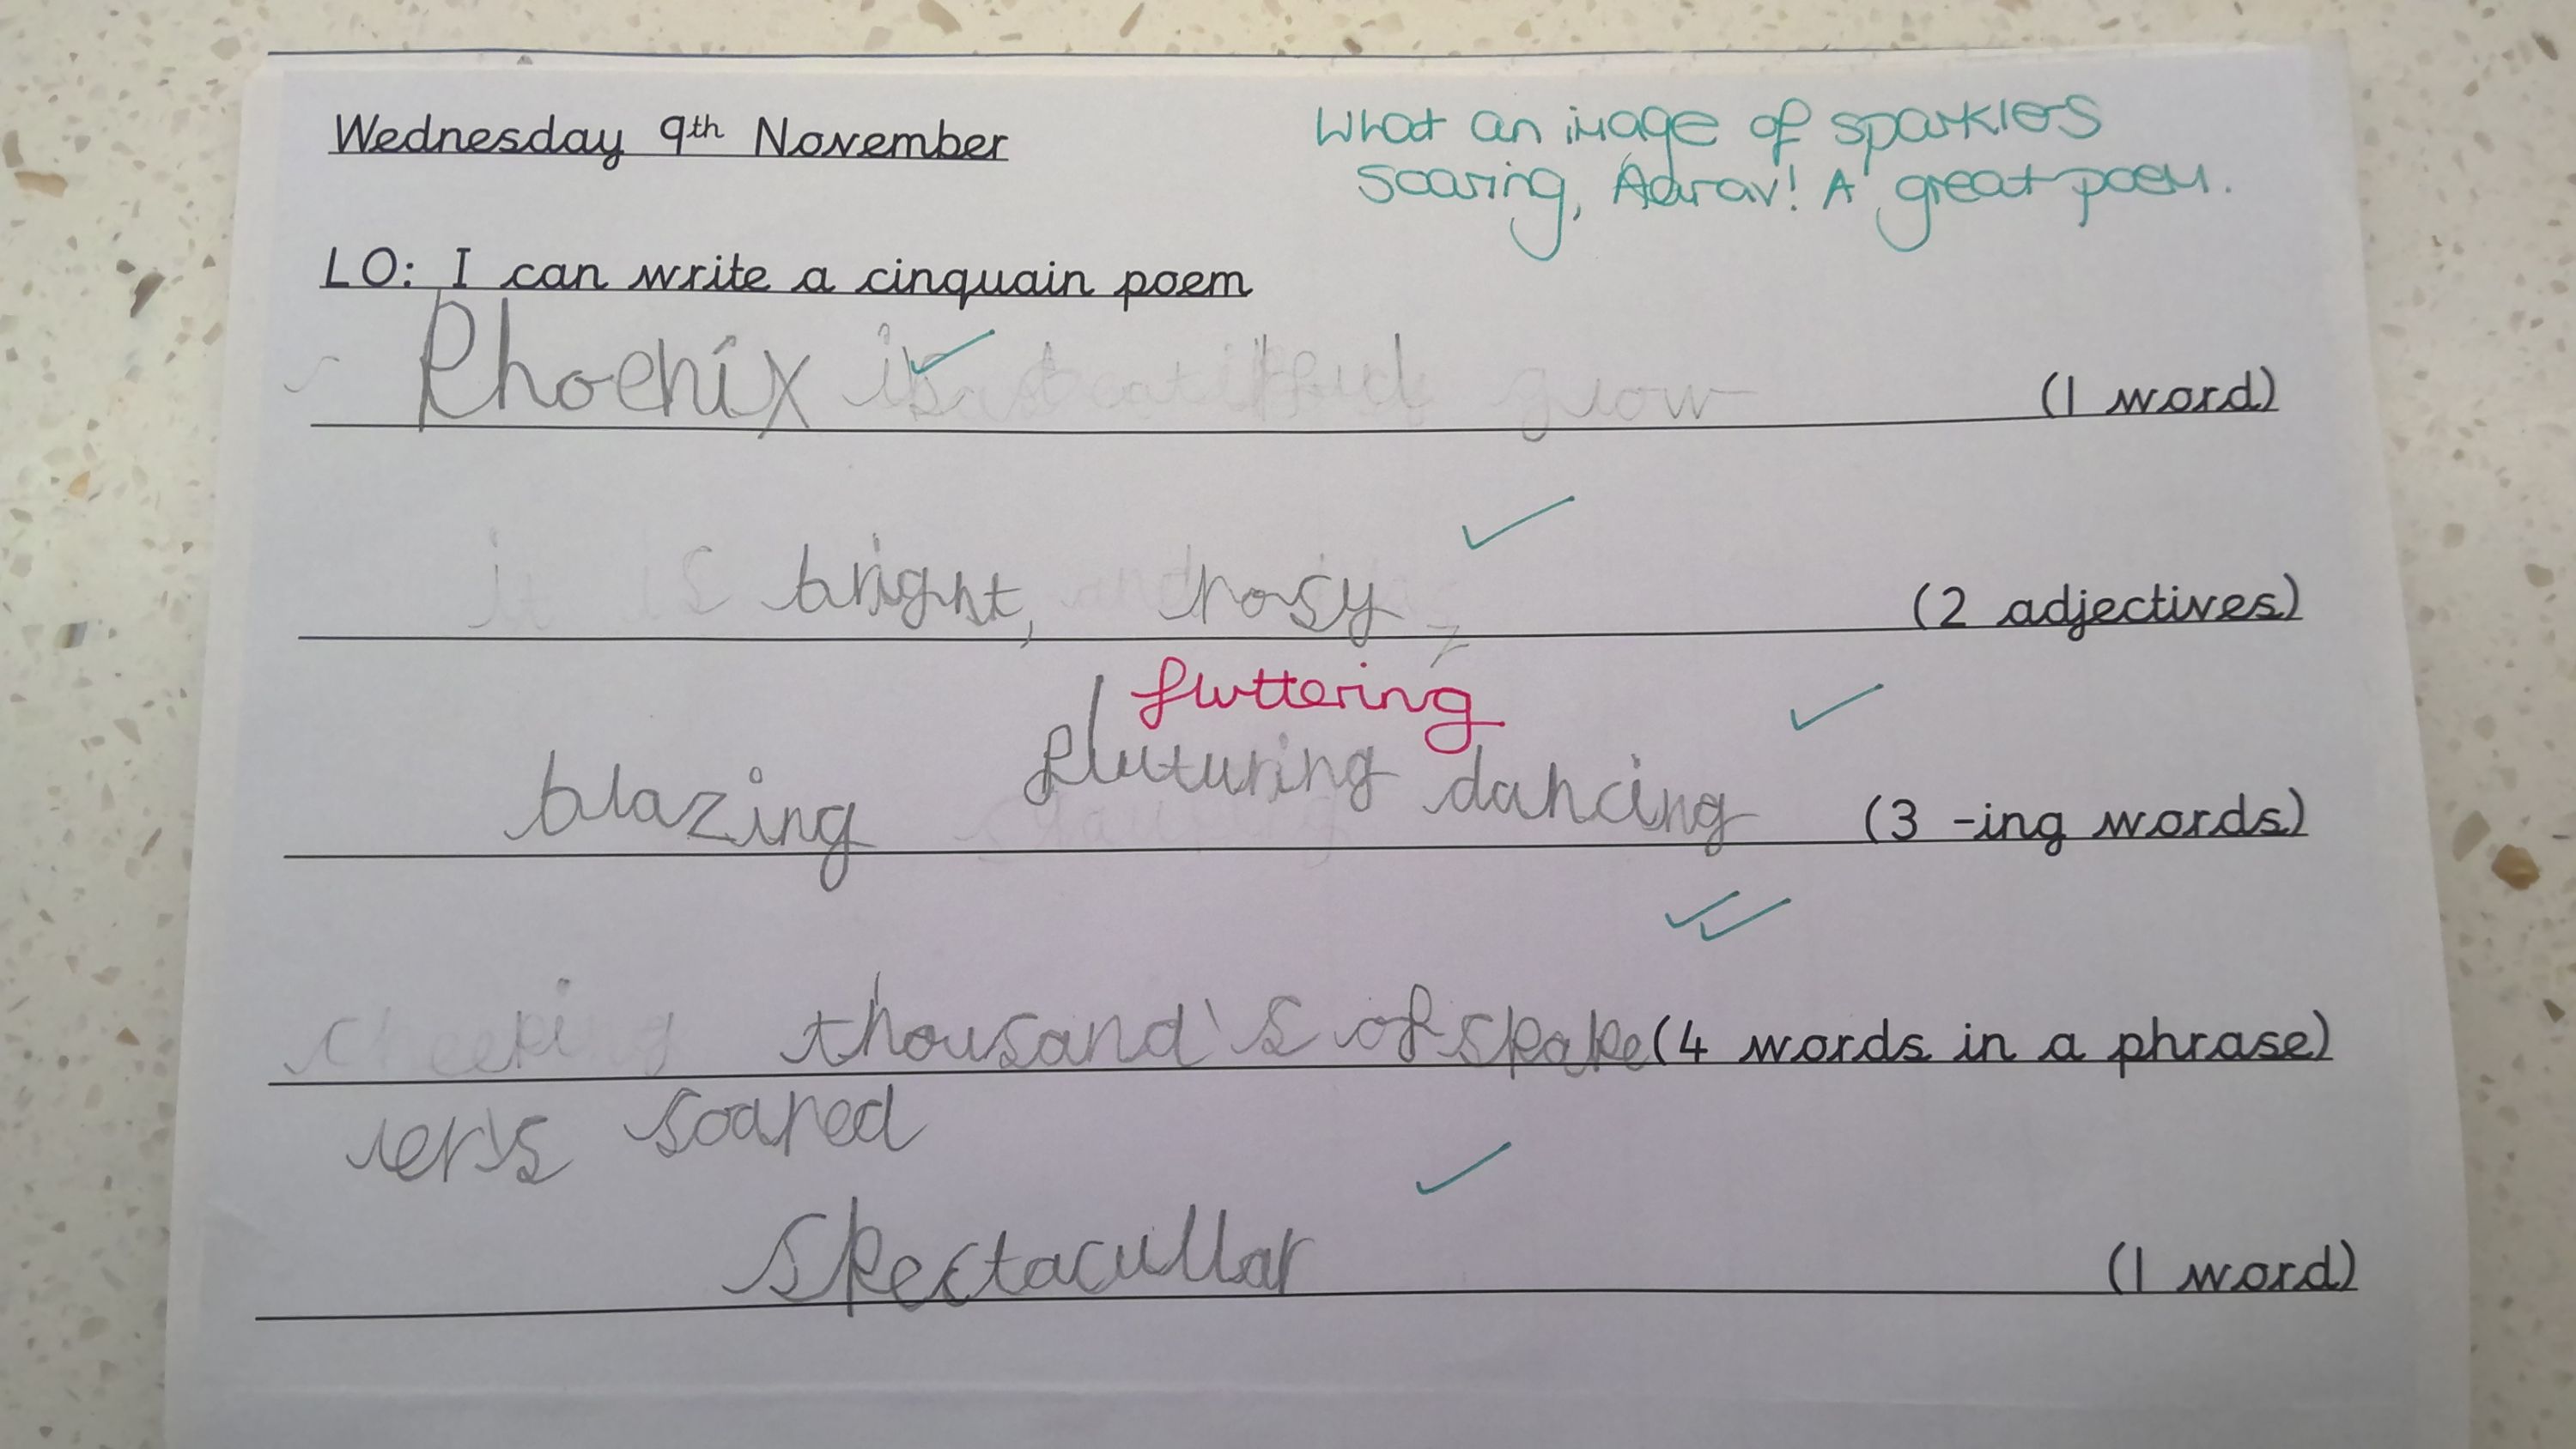 Wednesday 9th November
What an image of sparklers
soaring, Aarav! A great poem.
LO: I can write a cinquain poem
Phoenix (1 word)
bright, rosy, (2 adjectives)
fluttering
blazing fluturing dancing (3 -ing words)
thousand's of (4 words in a phrase)
soared
spectacullar (1 word)